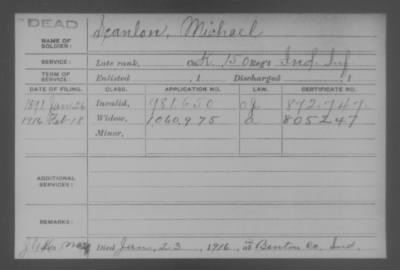 DEAD
NAME OF SOLDIER: Scanlon, Michael
SERVICE: Late rank, Co. K, 150 Regt Ind. Inf
TERM OF SERVICE: Enlisted , 1 Discharged , 1
DATE OF FILING. CLASS. APPLICATION NO. LAW. CERTIFICATE NO.
1891 Jan 26 Invalid, 981.650 872.747.
1916 Feb 18 Widow, 1,060,975 805247
Minor,
ADDITIONAL SERVICES:
REMARKS:
Died Jan. 23, 1916, at Benton Co. Ind.